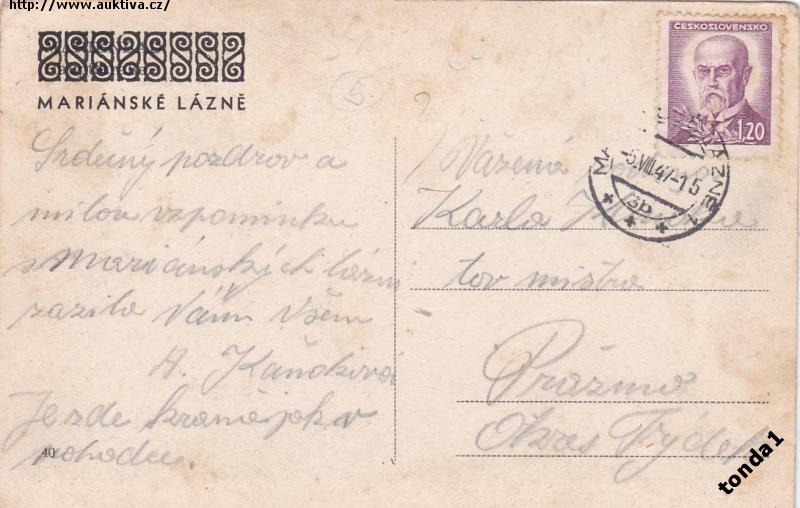 http://www.auktiva.cz/
MARIÁNSKÉ LÁZNĚ
Srdečný pozdrov a
milou vzpomínku
s Mariánských lázní
zazilo Vám všem
A. Kaňoková
Je zde krásně jak v
pohodce.
40
5
ČESKOSLOVENSKO
1,20
-5.VIII.47-15
LÁZNĚ 1
3b
Vážená
Karla
tov mistra
Pražmo
Okres Frýdek
tonda1